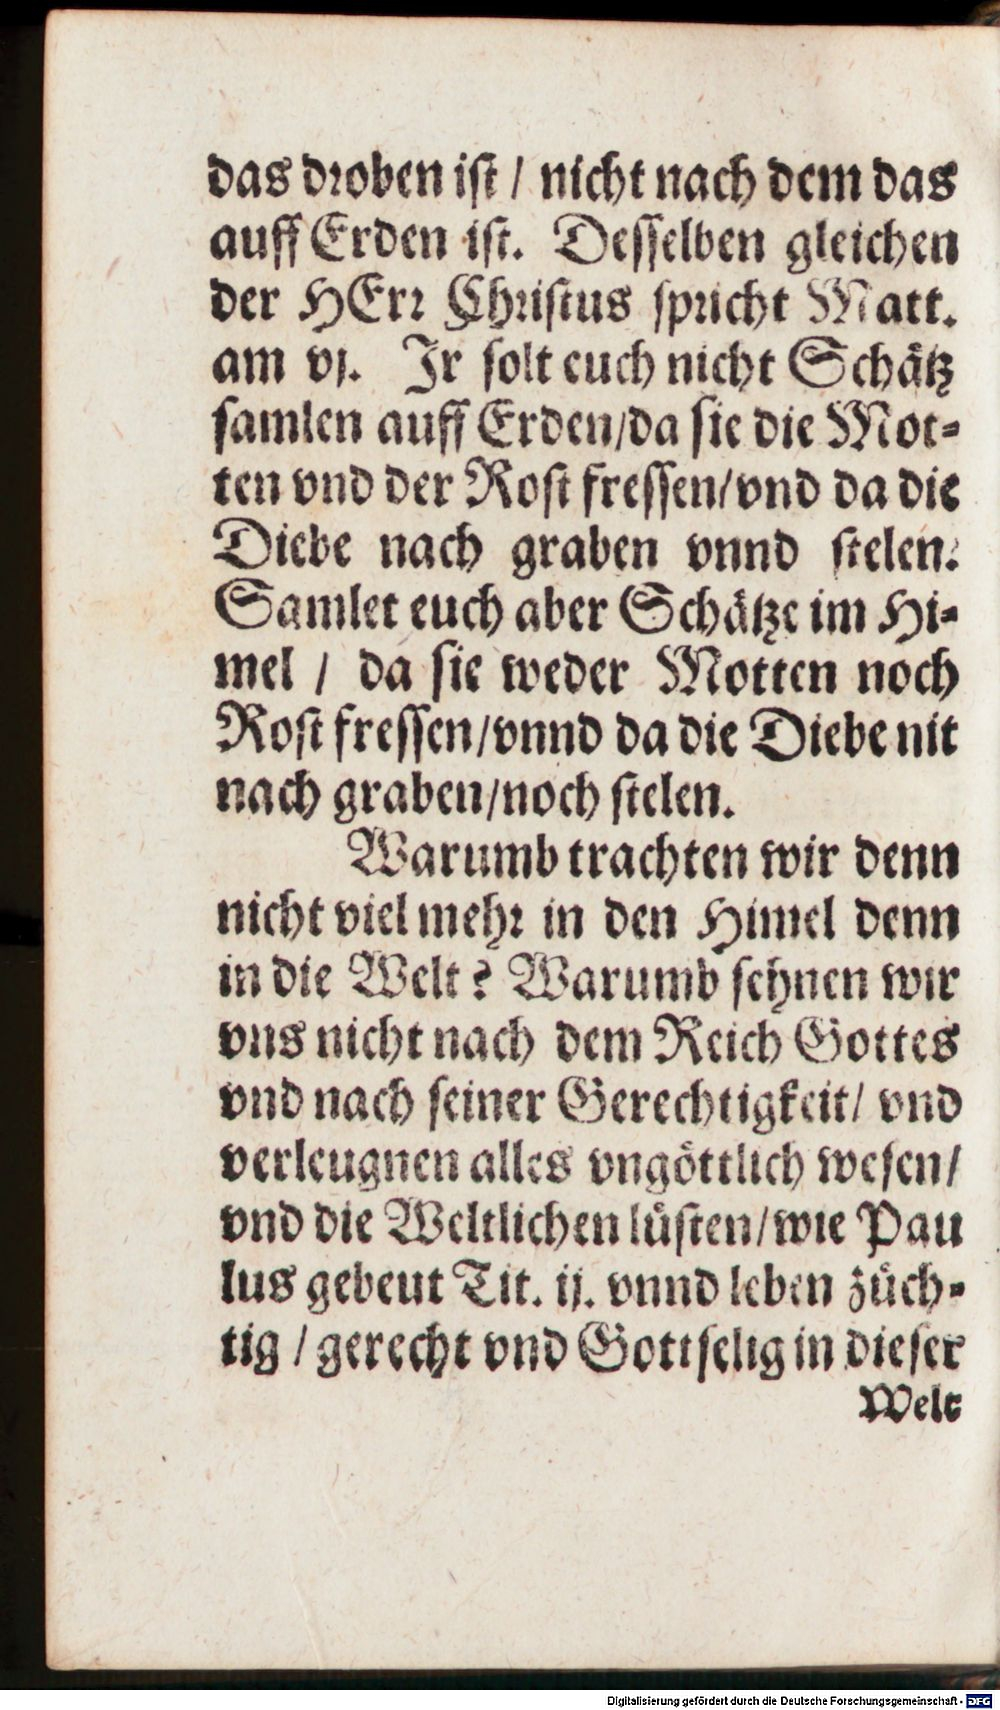 das droben ist / nicht nach dem das
auff Erden ist. Desselben gleichen
der HErr Christus spricht Matt.
am vj. Jr solt euch nicht Schätz
samlen auff Erden/da sie die Mot-
ten vnd der Rost fressen/vnd da die
Diebe nach graben vnnd stelen.
Samlet euch aber Schätze im Hi-
mel / da sie weder Motten noch
Rost fressen/vnnd da die Diebe nit
nach graben/noch stelen.
Warumb trachten wir denn
nicht viel mehr in den Himel denn
in die Welt? Warumb sehnen wir
vns nicht nach dem Reich Gottes
vnd nach seiner Gerechtigkeit/ vnd
verleugnen alles vngöttlich wesen/
vnd die Weltlichen lüsten/wie Pau
lus gebeut Tit. ij. vnnd leben züch-
tig / gerecht vnd Gottselig in dieser
Welt
Digitalisierung gefördert durch die Deutsche Forschungsgemeinschaft - DFG